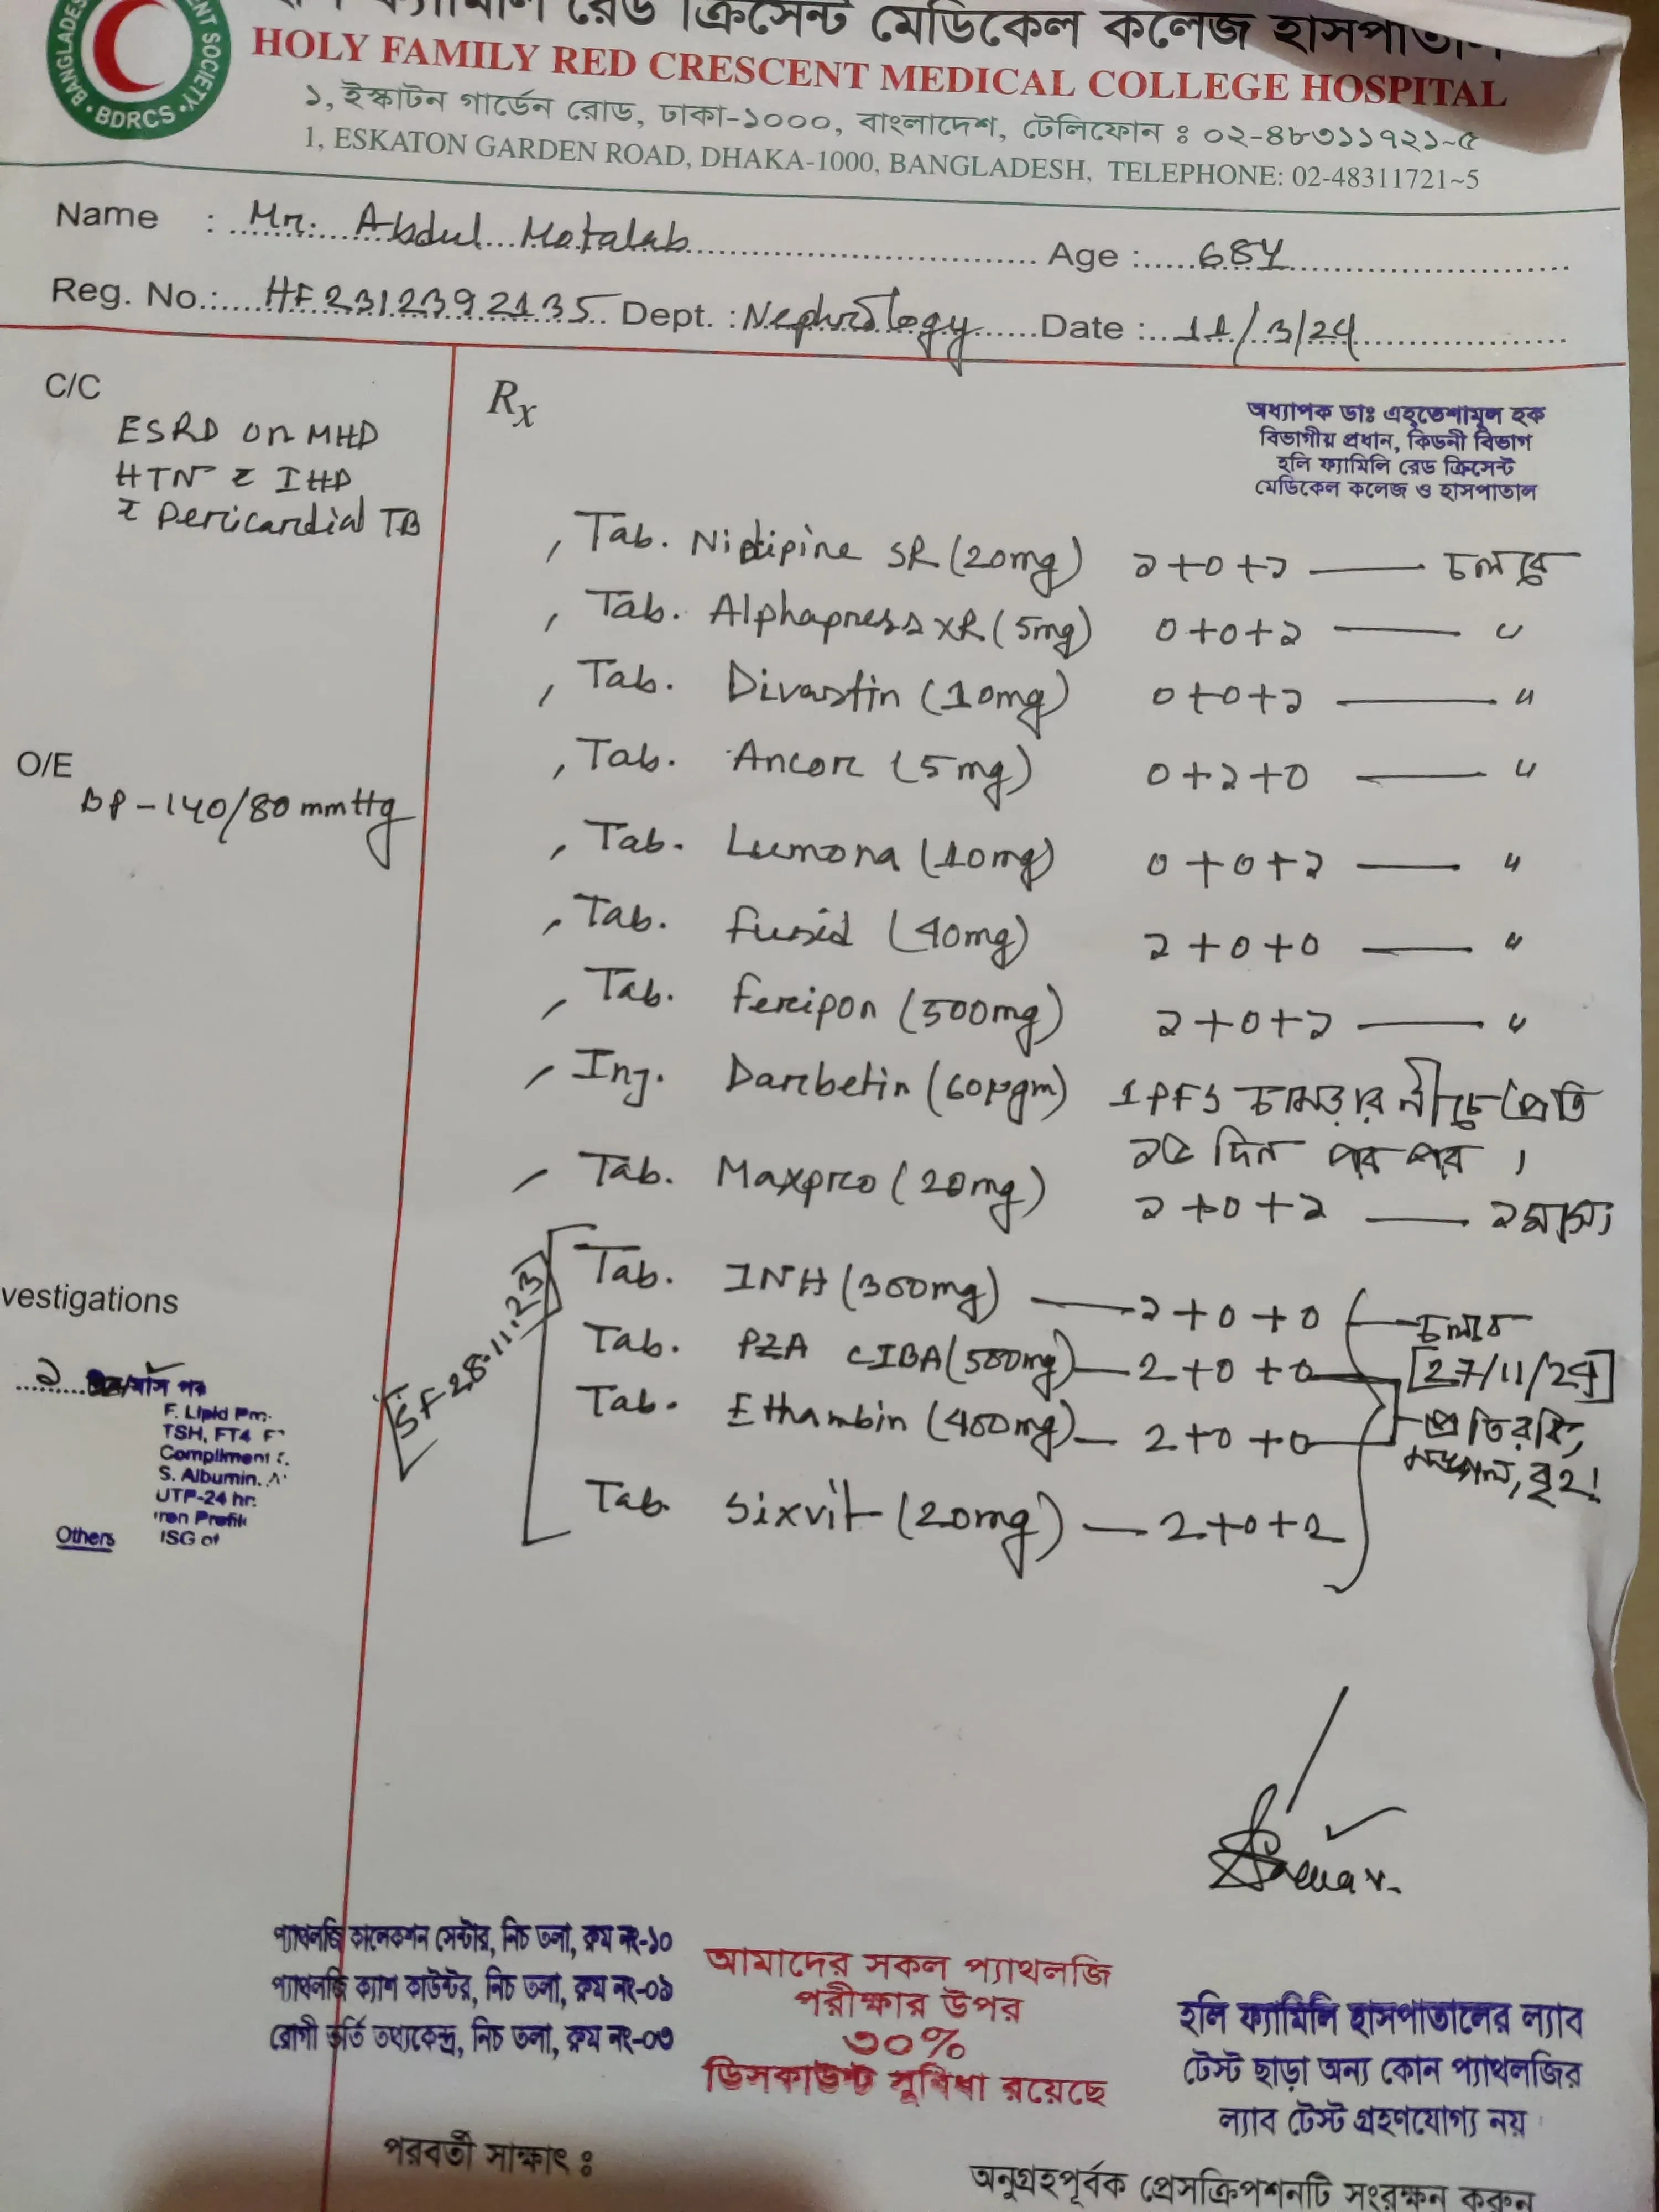 রেড ক্রিসেন্ট মেডিকেল কলেজ হাসপাতাল
HOLY FAMILY RED CRESCENT MEDICAL COLLEGE HOSPITAL
BDRCS
১, ইস্কাটন গার্ডেন রোড, ঢাকা-১০০০, বাংলাদেশ, টেলিফোন ঃ ০২-৪৮৩১১৭২১~৫
1, ESKATON GARDEN ROAD, DHAKA-1000, BANGLADESH, TELEPHONE: 02-48311721~5
Name : Mr. Abdul Motalab Age : 68Y
Reg. No.: HF2312392135 Dept. : Nephrology Date : 11/3/24
C/C
ESRD on MHD
HTN c̄ IHD
c̄ Pericardial TB
O/E
BP-140/80 mmHg
vestigations
F. Lipid
TSH, FT4
Compliment
S. Albumin.
UTP-24 hr.
Others
Rx
অধ্যাপক ডাঃ এহতেশামুল হক
বিভাগীয় প্রধান, কিডনী বিভাগ
হলি ফ্যামিলি রেড ক্রিসেন্ট
মেডিকেল কলেজ ও হাসপাতাল
Tab. Nidipine SR (20mg) ১+০+১ — চলবে
Tab. Alphapress XR (5mg) ০+০+১ — "
Tab. Divastin (10mg) ০+০+১ — "
Tab. Ancor (5mg) ০+১+০ — "
Tab. Lumona (10mg) ০+০+১ — "
Tab. Fusid (40mg) ১+০+০ — "
Tab. Feripon (500mg) ১+০+১ — "
Inj. Darbetin (60µgm) 1 PFS চামড়ার নীচে প্রতি
১৫ দিন পর পর ।
Tab. Maxpro (20mg) ১+০+১ — ২মাস
SF 28.11.23
Tab. INH (300mg) — ১+০+০ — চলবে
Tab. PZA CIBA (500mg) — 2+0+0 [27/11/24]
Tab. Ethambin (400mg) — 2+0+0 প্রতি রবি,
মঙ্গল, বৃহ!
Tab. Sixvit (20mg) — 2+0+2
প্যাথলজি কালেকশন সেন্টার, নিচ তলা, রুম নং-১০
প্যাথলজি ক্যাশ কাউন্টার, নিচ তলা, রুম নং-০৯
রোগী ভর্তি তথ্যকেন্দ্র, নিচ তলা, রুম নং-০৩
আমাদের সকল প্যাথলজি
পরীক্ষার উপর
৩০%
ডিসকাউন্ট সুবিধা রয়েছে
হলি ফ্যামিলি হাসপাতালের ল্যাব
টেস্ট ছাড়া অন্য কোন প্যাথলজির
ল্যাব টেস্ট গ্রহণযোগ্য নয়
পরবর্তী সাক্ষাৎ ঃ
অনুগ্রহপূর্বক প্রেসক্রিপশনটি সংরক্ষন করুন